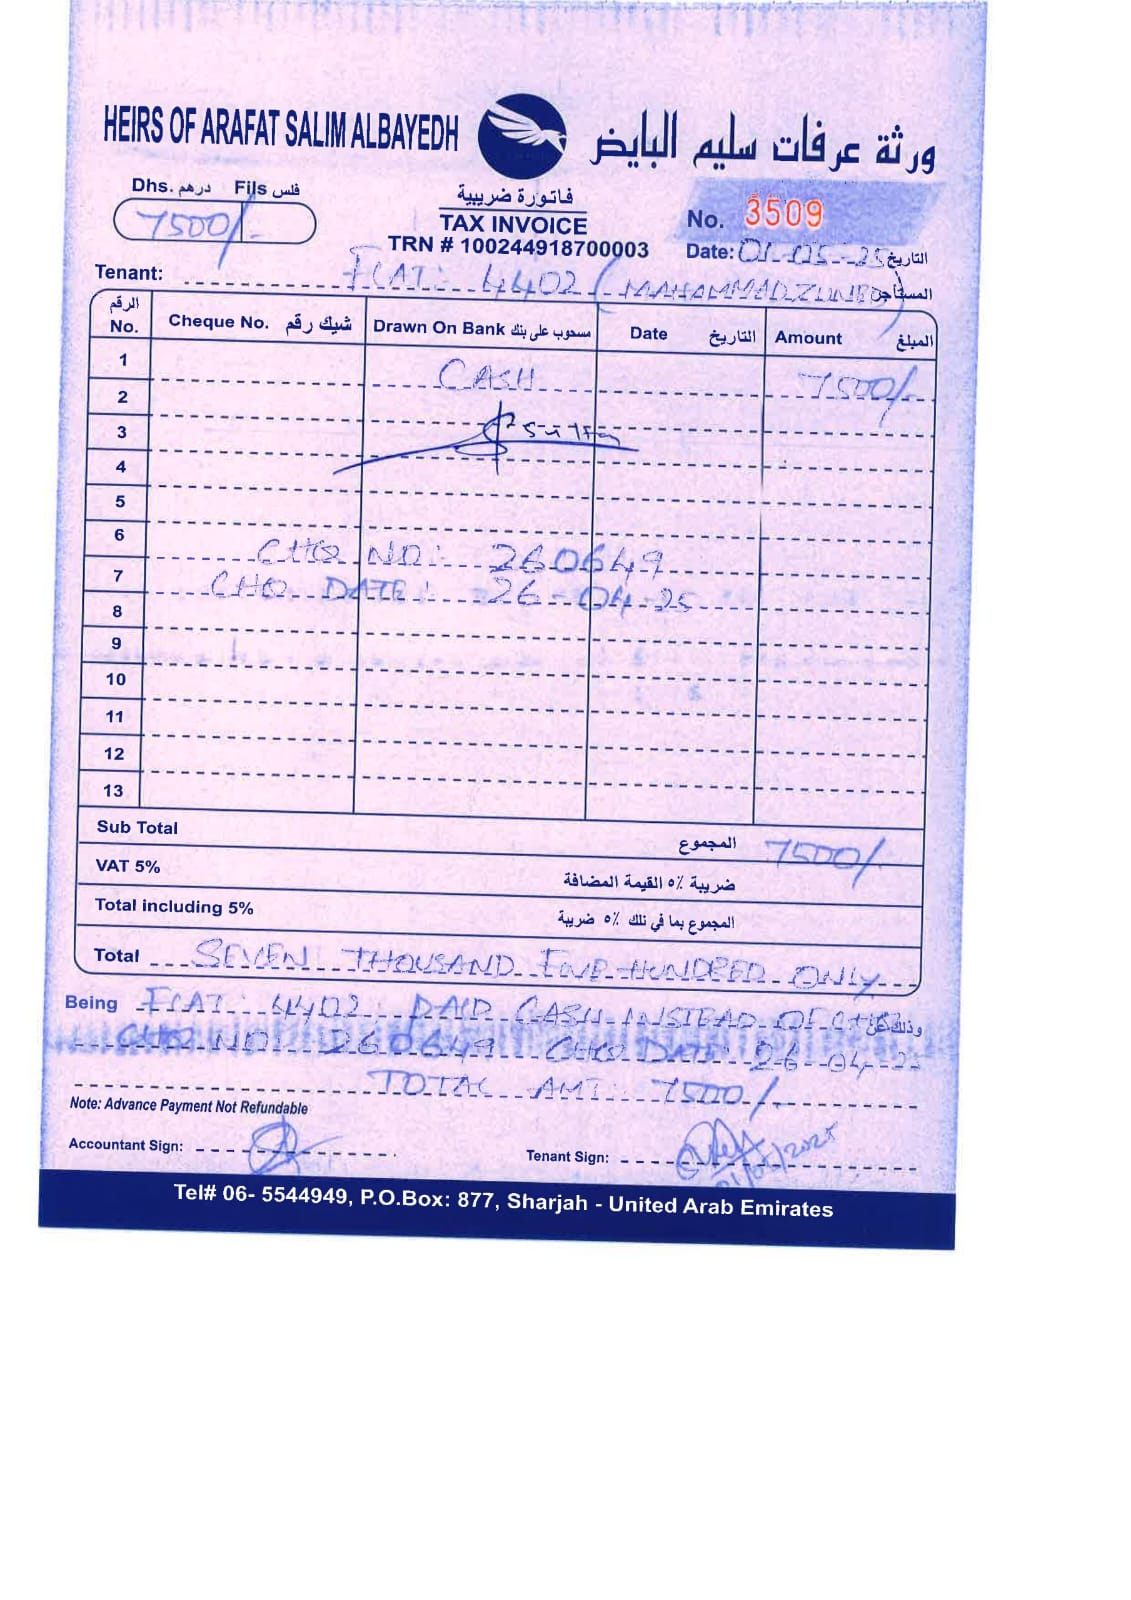 HEIRS OF ARAFAT SALIM ALBAYEDH ورثة عرفات سليم البايض
Dhs. درهم Fils فلس
7500/-
فاتورة ضريبية
TAX INVOICE
TRN # 100244918700003
No. 3509
Date: 01-05-25 التاريخ
Tenant: FLAT: 4402 (MAHAMMAD ZUNED) المستأجر
الرقم No. Cheque No. شيك رقم Drawn On Bank مسحوب على بنك Date التاريخ Amount المبلغ
1 CASH 7500/-
2
3
4
5
6 CHQ NO: 260649
7 CHQ DATE: 26-04-25
8
9
10
11
12
13
Sub Total المجموع 7500/-
VAT 5% ضريبة ٥٪ القيمة المضافة
Total including 5% المجموع بما في ذلك ٥٪ ضريبة
Total SEVEN THOUSAND FIVE HUNDRED ONLY
Being FLAT: 4402 PAID CASH INSTEAD OF CHQ وذلك عن
CHQ NO: 260649 CHQ DATE: 26-04-25
TOTAL AMT: 7500/-
Note: Advance Payment Not Refundable
Accountant Sign:
Tenant Sign:
Tel# 06- 5544949, P.O.Box: 877, Sharjah - United Arab Emirates